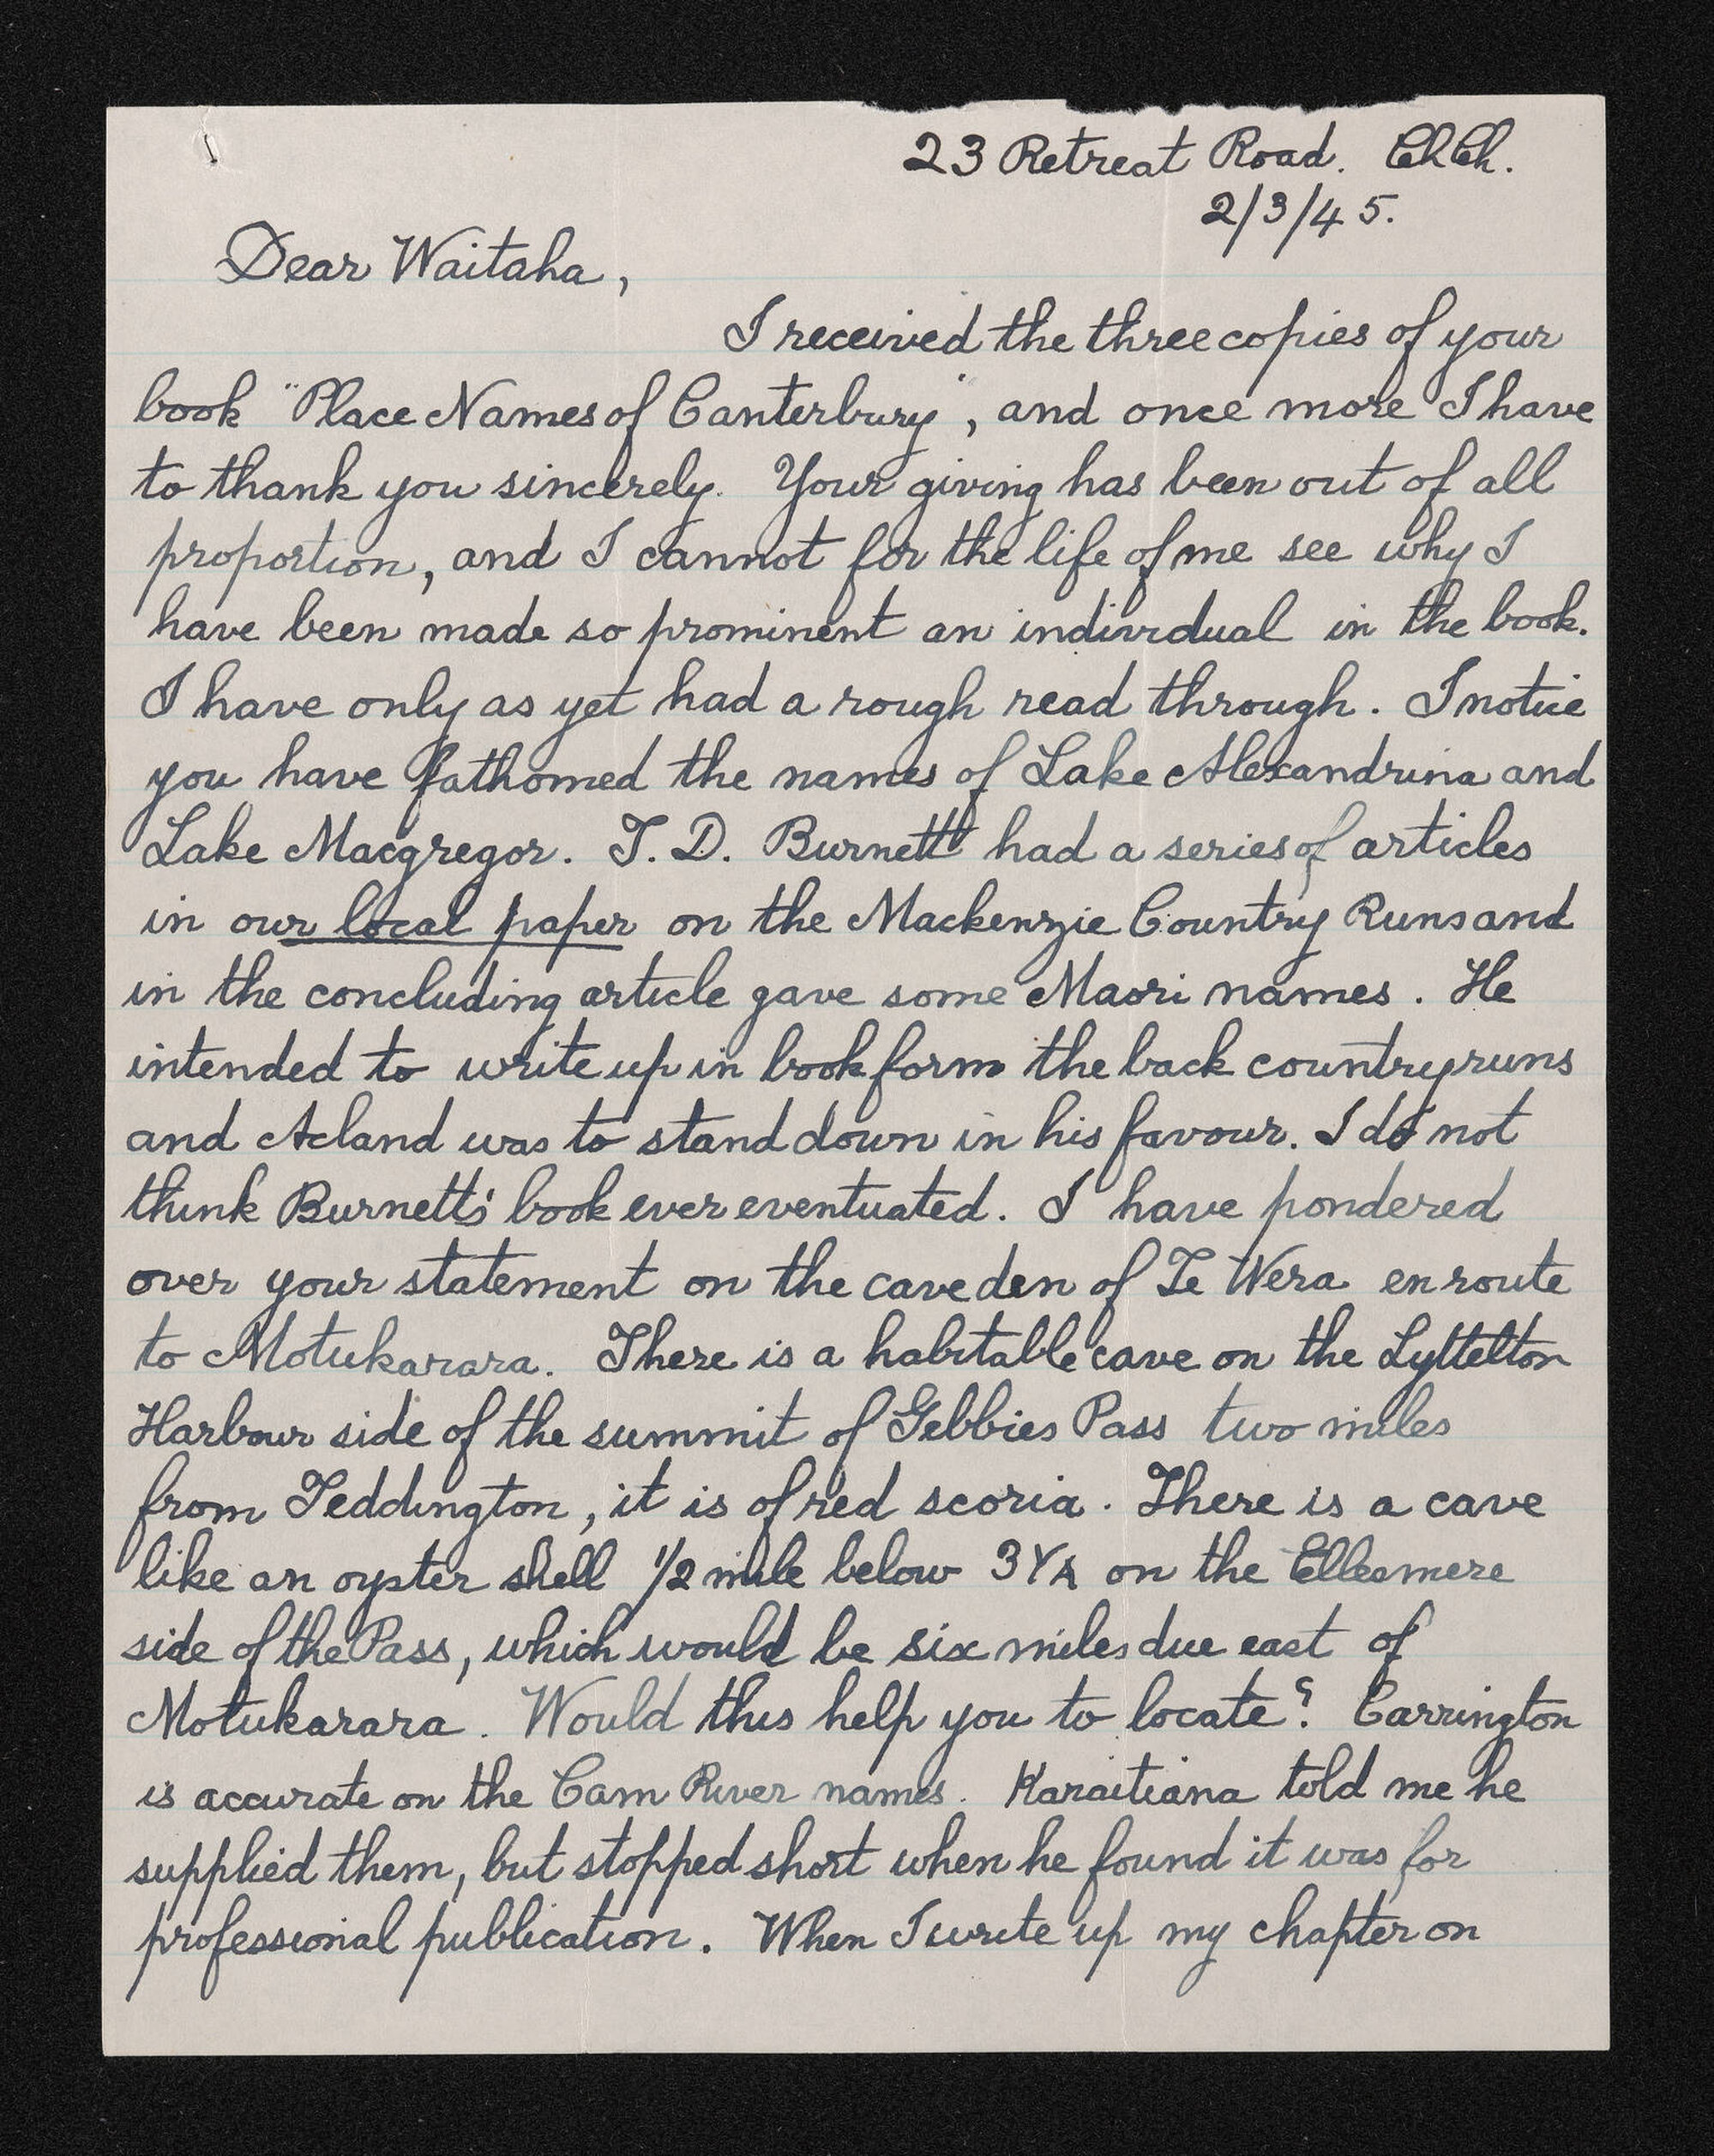 23 Retreat Road. ChCh.
2/3/45.
Dear Waitaha,
I received the three copies of your
book "Place Names of Canterbury", and once more I have
to thank you sincerely. Your giving has been out of all
proportion, and I cannot for the life of me see why I
have been made so prominent an individual in the book.
I have only as yet had a rough read through. I notice
you have fathomed the names of Lake Alexandrina and
Lake Macgregor. T. D. Burnett had a series of articles
in our local paper on the Mackenzie Country Runs and
in the concluding article gave some Maori names. He
intended to write up in book form the back country runs
and Acland was to stand down in his favour. I do not
think Burnett's book ever eventuated. I have pondered
over your statement on the cave den of Te Wera en route
to Motukarara. There is a habitable cave on the Lyttelton
Harbour side of the summit of Gebbies Pass two miles
from Teddington, it is of red scoria. There is a cave
like an oyster shell 1/2 mile below 3YA on the Ellesmere
side of the Pass, which would be six miles due east of
Motukarara. Would this help you to locate? Carrington
is accurate on the Cam River names. Karaitiana told me he
supplied them, but stopped short when he found it was for
professional publication. When I write up my chapter on